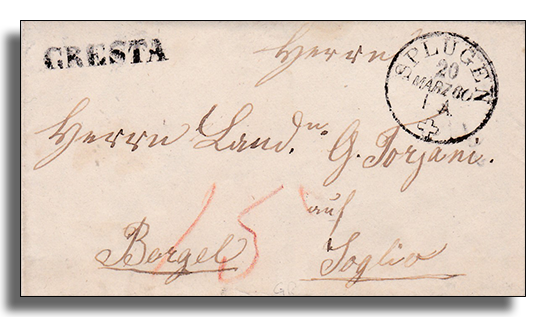 CRESTA
Herrn
SPLÜGEN
20
MÄRZ 60
A
Herrn Land.ⁿ G. Torjani.
auf
15
Bergel Soglio